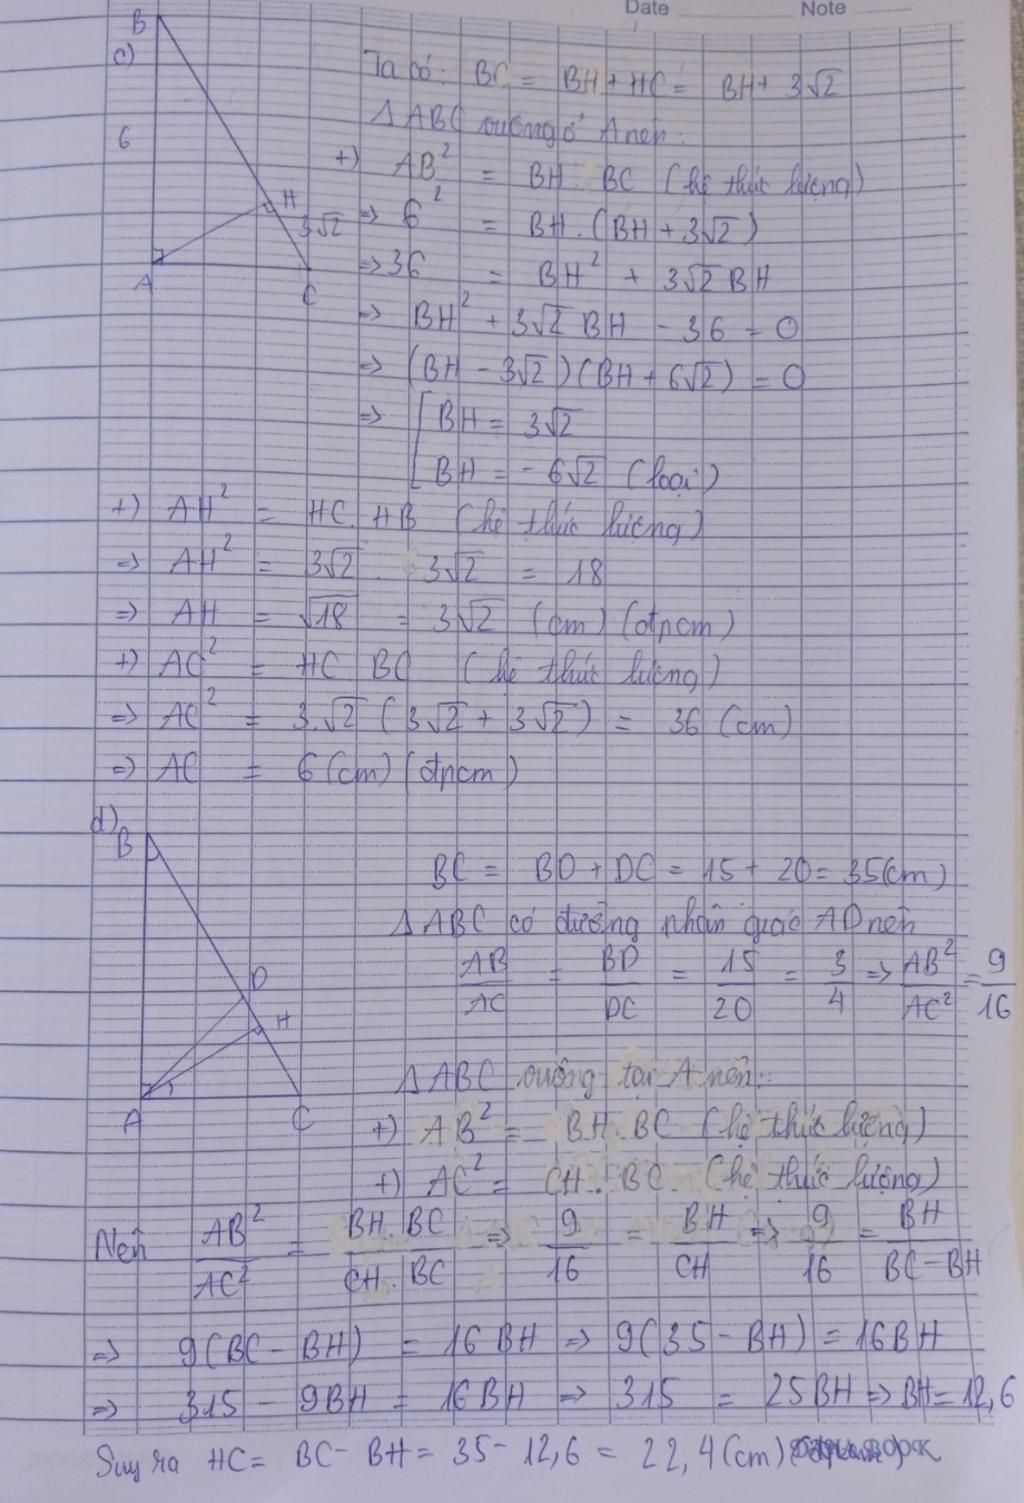 Date Note
B
c)
6
H
3√2
A
C
Ta có: BC = BH + HC = BH + 3√2
Δ ABC vuông ở A nên:
+) AB² = BH . BC (hệ thức lượng)
=> 6² = BH . (BH + 3√2)
=> 36 = BH² + 3√2 BH
=> BH² + 3√2 BH - 36 = 0
=> (BH - 3√2)(BH + 6√2) = 0
=> [ BH = 3√2
BH = - 6√2 (loại)
+) AH² = HC . HB (hệ thức lượng)
=> AH² = 3√2 . 3√2 = 18
=> AH = √18 = 3√2 (cm) (đpcm)
+) AC² = HC BC (hệ thức lượng)
=> AC² = 3.√2 (3√2 + 3√2) = 36 (cm)
=> AC = 6 (cm) (đpcm)
d)
B
D
H
A
C
BC = BD + DC = 15 + 20 = 35(cm)
Δ ABC có đường phân giác AD nên
AB/AC = BD/DC = 15/20 = 3/4 => AB²/AC² = 9/16
Δ ABC vuông tại A nên:
+) AB² = BH . BC (hệ thức lượng)
+) AC² = CH . BC (hệ thức lượng)
Nên AB²/AC² = BH . BC/CH . BC => 9/16 = BH/CH => 9/16 = BH/BC - BH
=> 9(BC - BH) = 16 BH => 9(35 - BH) = 16BH
=> 315 - 9BH = 16BH => 315 = 25BH => BH = 12,6
Suy ra HC = BC - BH = 35 - 12,6 = 22,4(cm)